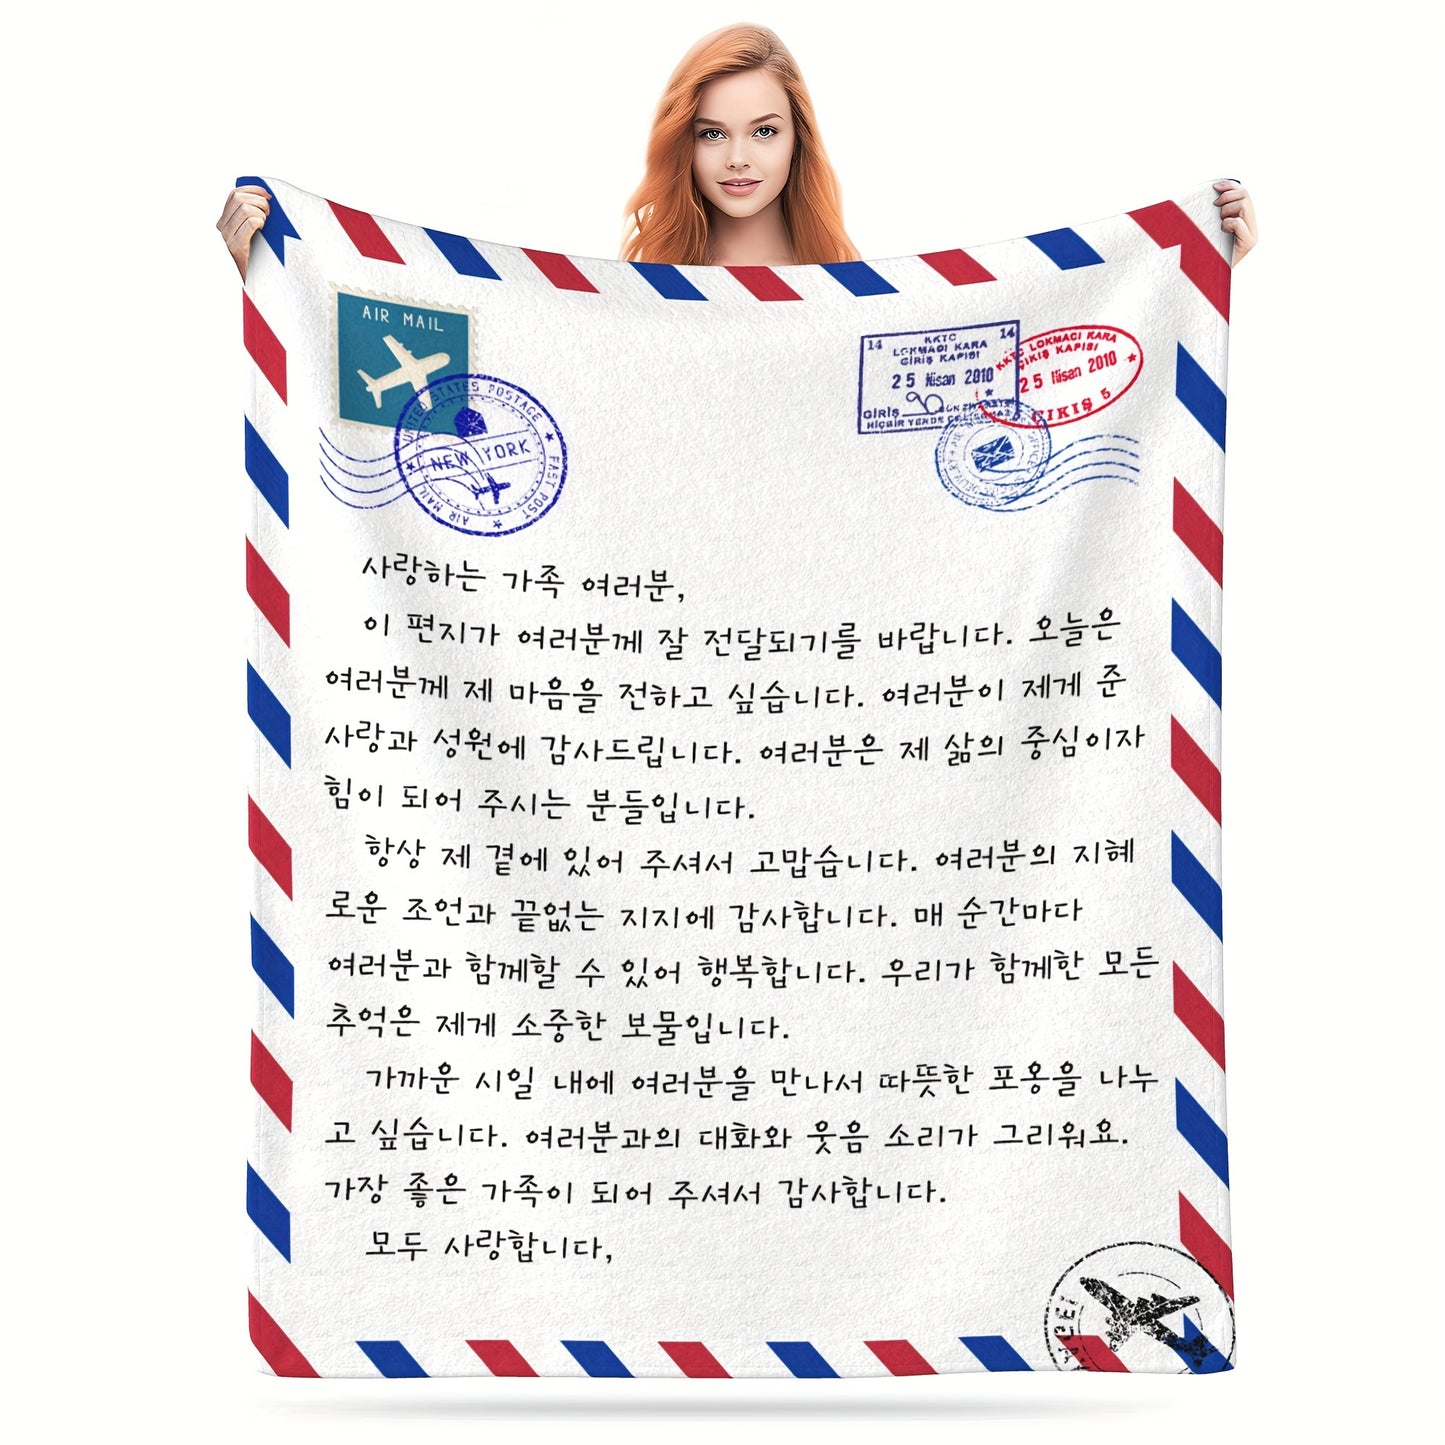 AIR MAIL
UNITED STATES POSTAGE
FAST POST
NEW YORK
AIR MAIL
14 KKTC 14
LOKMACI KARA
GİRİŞ KAPISI
25 Nisan 2010
GİRİŞ
KKTC LOKMACI KARA
ÇIKIŞ KAPISI
25 Nisan 2010
ÇIKIŞ 5
사랑하는 가족 여러분,
이 편지가 여러분께 잘 전달되기를 바랍니다. 오늘은
여러분께 제 마음을 전하고 싶습니다. 여러분이 제게 준
사랑과 성원에 감사드립니다. 여러분은 제 삶의 중심이자
힘이 되어 주시는 분들입니다.
항상 제 곁에 있어 주셔서 고맙습니다. 여러분의 지혜
로운 조언과 끝없는 지지에 감사합니다. 매 순간마다
여러분과 함께할 수 있어 행복합니다. 우리가 함께한 모든
추억은 제게 소중한 보물입니다.
가까운 시일 내에 여러분을 만나서 따뜻한 포옹을 나누
고 싶습니다. 여러분과의 대화와 웃음 소리가 그리워요.
가장 좋은 가족이 되어 주셔서 감사합니다.
모두 사랑합니다,